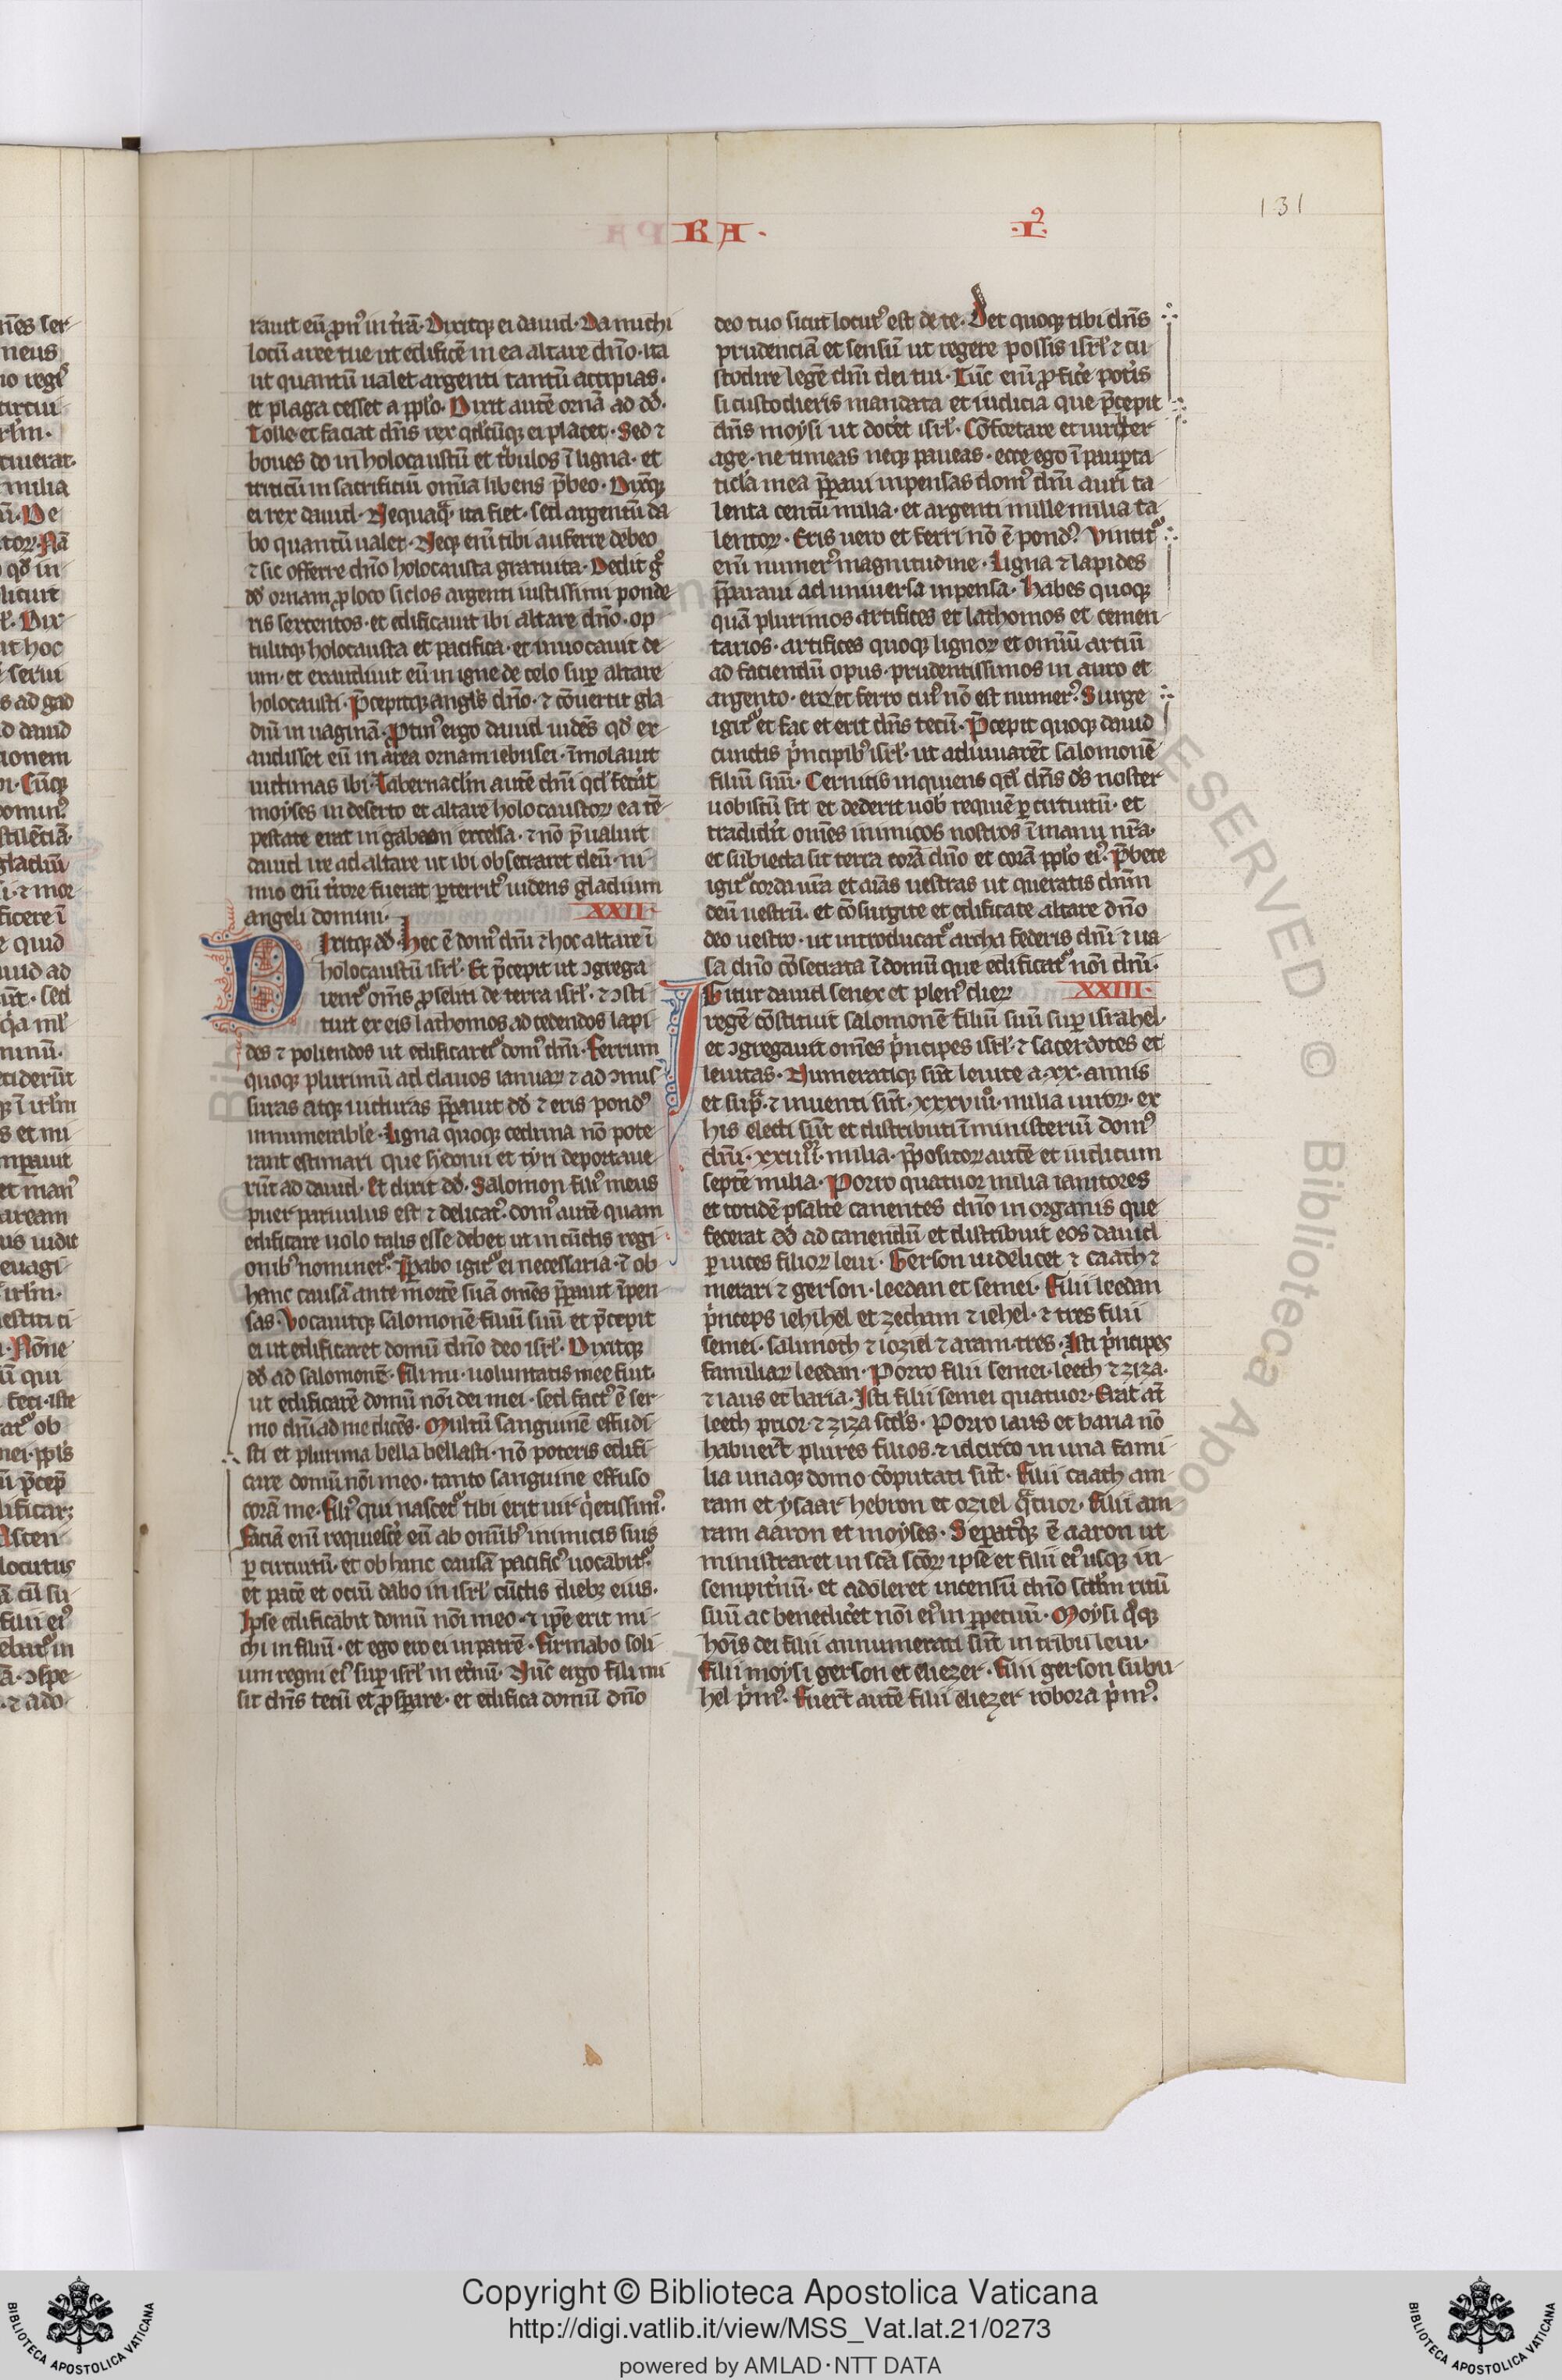 131
RA.
.I.
rauit eū ꝓnꝰ in t̄rā. Dixitqꝫ ei dauid. Da michi
locū aree tue ut edificē in ea altare dn̄o. ita
ut quantū ualet argenti tantū accipias.
et plaga cesset a ppl̓o. Dixit autē ornā ad dd̓.
Tolle et faciat dn̄s rex qd̓cūqꝫ ei placet. Sed ⁊
boues do in holocaustū et tͥbulos ī ligna. et
triticū in sacrificiū om̄ia libens p̄beo. Dixitqꝫ
ei rex dauid. Nequaqͣ. ita fiet. sed argentū da
bo quantū ualet. Neqꝫ enī tibi auferre debeo
⁊ sic offerre dn̄o holocausta gratuita. Dedit gͦ
dd̓ ornam ꝓ loco siclos argenti iustissimi ponde
ris sexcentos. et edificauit ibi altare dn̄o. op
tulitqꝫ holocausta et pacifica. et inuocauit de
um. et exaudiuit eū in igne de celo suꝑ altare
holocausti. p̄cepitqꝫ angl̓s dn̄o. ⁊ cōuertit gla
diū in uaginā. Ꝓtinꝰ ergo dauid uidēs qd̓ ex
audisset eū in area ornam iebusei. īmolauit
uictimas ibi. Tabernacl̓m autē dn̄i qd̓ fecˀat
moyses in deserto et altare holocaustoꝝ ea tē
pestate erat in gabaon excelsa. ⁊ nō p̄ualuit
dauid ire ad altare ut ibi obsecraret deū. ni
mio enī tͥore fuerat ꝑterritꝰ uidens gladium
angeli domini.
XXII
Dixitqꝫ dd̓. Hec ē domꝰ dn̄i ⁊ hoc altare ī
holocaustū isrl̓. Et p̄cepit ut ↄgrega
rentᷣ om̄s ꝓseliti de terra isrl̓. ⁊ ↄsti
tuit ex eis lathomos ad cedendos lapi
des ⁊ poliendos ut edificaretᷣ domꝰ dn̄i. Ferrum
quoqꝫ plurimū ad clauos ianuaꝝ ⁊ ad ↄmis
suras atqꝫ iuncturas p̄ꝑauit dd̓ ⁊ eris pondꝰ
innumerabile. Ligna quoqꝫ cedrina nō pote
rant estimari que sydonii et tyri deportaue
rūt ad dauid. Et dixit dd̓. Salomon filiꝰ meus
puer paruulus est ⁊ delicatꝰ. domꝰ autē quam
edificare uolo talis esse debet ut in cūctis regi
onibꝰ nominetᷣ. p̄ꝑabo igitᷣ ei necessaria. ⁊ ob
hanc causā ante mortē suā om̄es p̄ꝑauit īpen
sas. Vocauitqꝫ salomonē filiū suū et p̄cepit
ei ut edificaret domū dn̄o deo isrl̓. Dixitqꝫ
dd̓ ad salomonē. Fili mi. uoluntatis mee fuit.
ut edificarē domū nōi dei mei. sed factꝰ ē ser
mo dn̄i ad me dicēs. Multū sanguinē effudi
sti et plurima bella bellasti. nō poteris edifi
care domū nōi meo. tanto sanguine effuso
corā me. Filiꝰ qui nascetᷣ tibi erit uir qͥetissimꝰ.
Faciā enī requiescˀe eū ab om̄ibꝰ inimicis suis
ꝑ circuitū. et ob hanc causā pacificꝰ uocabitᷣ.
et pacē et ociū dabo in isrl̓ cūctis diebꝫ eius.
Ipse edificabit domū nōi meo. ⁊ ip̄e erit mi
chi in filiū. et ego ero ei in patrē. Firmabo soli
um regni eiꝰ suꝑ isrl̓ in et̄nū. Nūc ergo fili mi
sit dn̄s tecū et ꝓsꝑare. et edifica domū dn̄o
deo tuo sicut locutꝰ est de te. Det quoqꝫ tibi dn̄s
prudenciā et sensū ut regere possis isrl̓ ⁊ cu
stodire legē dn̄i dei tui. Tūc enī ꝓficˀe potˀis
si custodieris mandata et iudicia que p̄cepit
dn̄s moysi ut docˀet isrl̓. Cōfortare et uiriliter
age. ne timeas neqꝫ paueas. ecce ego ī pauꝑta
ticl̓a mea p̄ꝑaui inpensas domꝰ dn̄i auri ta
lenta centū milia. et argenti mille milia ta
lentoꝝ. Eris uero et ferri nō ē pondꝰ. Vincitᷣ
enī numerꝰ magnitudine. Ligna ⁊ lapides
p̄paraui ad uniuersa inpensa. Habes quoqꝫ
quā plurimos artifices et lathomos et cemen
tarios. artifices quoqꝫ lignoꝝ et om̄iū artiū
ad faciendū opus. prudentissimos in auro et
argento. ere et ferro cuiꝰ nō est numerꝰ. Surge
igitᷣ et fac et erit dn̄s tecū. p̄cepit quoqꝫ dauid
cunctis pͥncipibꝰ isrl̓. ut adiuuarēt salomonē
filiū suū. Cernitis inquiens qd̓ dn̄s dꝰs noster
uobiscū sit et dederit uob̓ requiē ꝑ circuitū. et
tradidˀit om̄es inimicos nostros ī manu nr̄a.
et subiecta sit terra corā dn̄o et corā ppl̓o eiꝰ. p̄bete
igitᷣ corda ur̄a et aīas uestras ut queratis dn̄m
deū uestrū. et cōsurgite et edificate altare dn̄o
deo uestro. ut introducatᷣ archa federis dn̄i ⁊ ua
sa dn̄o cōsecrata ī domū que edificatᷣ nōi dn̄i.
Igitur dauid senex et plenꝰ dieꝝ
XXIII.
regē cōstituit salomonē filiū suū suꝑ israhel.
et ↄgregauit om̄es pͥncipes isrl̓. ⁊ sacerdotes et
leuitas. Numeratiqꝫ sūt leuite a xx. annis
et supͣ. ⁊ inuenti sūt. xxxviiiᵒ. milia uiroꝝ. ex
his electi sūt et distributi ī ministeriū domꝰ
dn̄i. xxiiiiᵒʳ. milia. p̄positoꝝ autē et iudicum
septē milia. Porro quatuor milia ianitores
et totidē psalte canentes dn̄o in organis que
fecerat dd̓ ad canendū et distribuit eos dauid
ꝑ uices filioꝝ leui. Gerson uidelicet ⁊ caath ⁊
merari ⁊ gerson. leedan et semei. Filii leedan
pͥnceps iehihel et zechan ⁊ iehel. ⁊ tres filii
semei. salimoth ⁊ ioziel ⁊ aram. tres. Isti pͥncipes
familiaꝝ leedan. Porro filii semei. leeth ⁊ ziza.
⁊ iaus et baria. Isti filii semei quatuor. Erat aūt
leeth prior. ⁊ ziza scd̓s. Porro iaus et baria nō
habuerūt plures filios. ⁊ idcirco in una fami
lia unaqꝫ domo cōputati sūt. Filii caath am
ram et ysaar hebron et oziel qͣtuor. Filii am
ram aaron et moyses. Separatꝰqꝫ ē aaron ut
ministraret in scā scōꝝ ipse et filii eiꝰ usqꝫ in
sempitˀnū. et adoleret incensū dn̄o scd̓m ritū
suū ac benedicˀet nōi eiꝰ in ꝑpetuū. Moysi qͦqꝫ
hōis dei filii annumerati sūt in tribu leui.
Filii moysi gerson et eliezer. Filii gerson subu
hel pͥmꝰ. Fuerūt autē filii eliezer roboza pͥmꝰ.
Copyright © Biblioteca Apostolica Vaticana
http://digi.vatlib.it/view/MSS_Vat.lat.21/0273
powered by AMLAD·NTT DATA
BIBLIOTECA APOSTOLICA VATICANA
BIBLIOTECA APOSTOLICA VATICANA